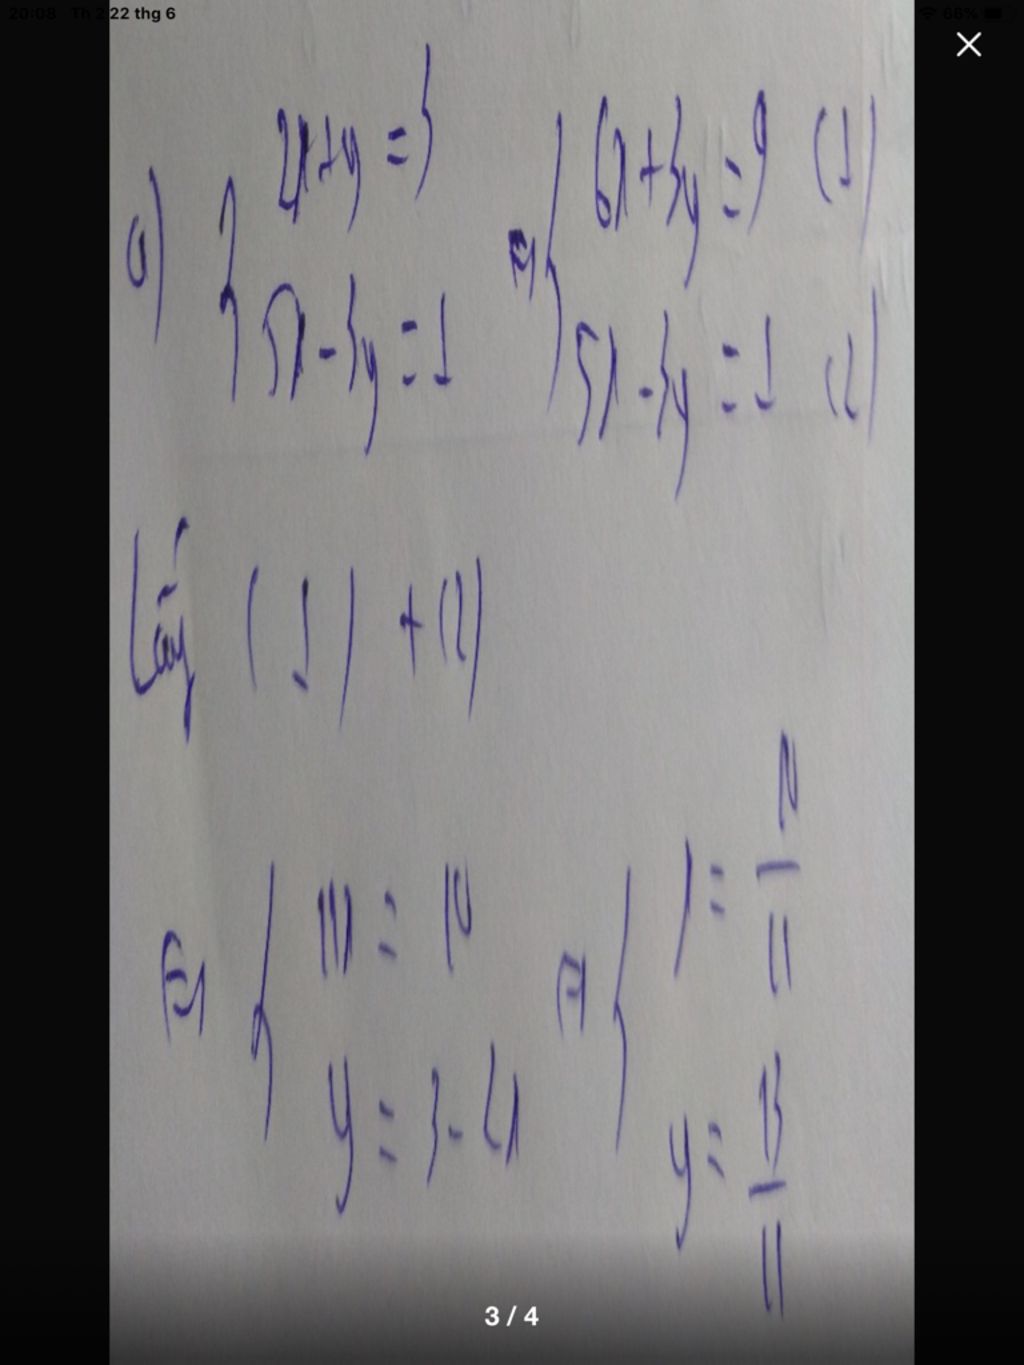 20:08 Th 2 22 thg 6
66%
a) { 2x+y = 3 ⇔ { 6x+3y = 9 (1)
5x-3y = 1 5x-3y = 1 (2)
Lấy (1) + (2)
⇔ { 11x = 10 ⇔ { x = 10/11
y = 3-2x y = 13/11
3 / 4